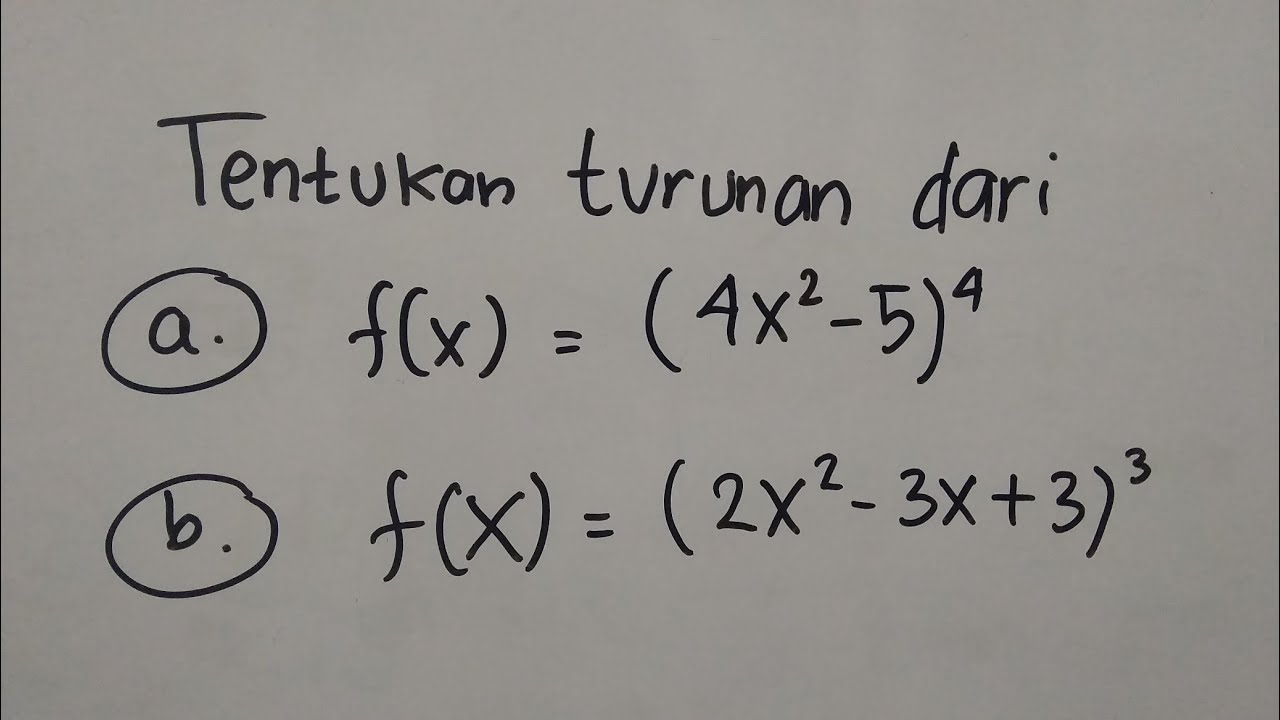 Tentukan turunan dari
a. f(x) = (4x² - 5)⁴
b. f(x) = (2x² - 3x + 3)³